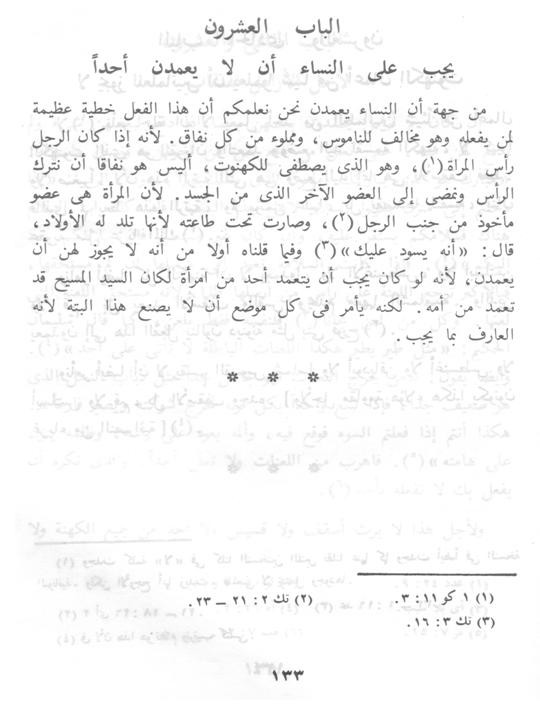 الباب العشرون
يجب على النساء أن لا يعمدن أحداً
من جهة أن النساء يعمدن نحن نعلمكم أن هذا الفعل خطية عظيمة
لمن يفعله وهو مخالف للناموس، ومملوء من كل نفاق. لأنه إذا كان الرجل
رأس المرأة(١)، وهو الذى يصطفى للكهنوت، أليس هو نفاقا أن نترك
الرأس ونمضى إلى العضو الآخر الذى من الجسد. لأن المرأة هى عضو
مأخوذ من جنب الرجل(٢)، وصارت تحت طاعته لأنها تلد له الأولاد،
قال: «أنه يسود عليك»(٣) وفيما قلناه أولا من أنه لا يجوز لهن أن
يعمدن، لأنه لو كان يجب أن يتعمد أحد من امرأة لكان السيد المسيح قد
تعمد من أمه. لكنه يأمر فى كل موضع أن لا يصنع هذا البتة لأنه
العارف بما يجب.
* * *
(١) ١ كو ١١: ٣. (٢) تك ٢: ٢١ ــ ٢٣.
(٣) تك ٣: ١٦.
١٣٣